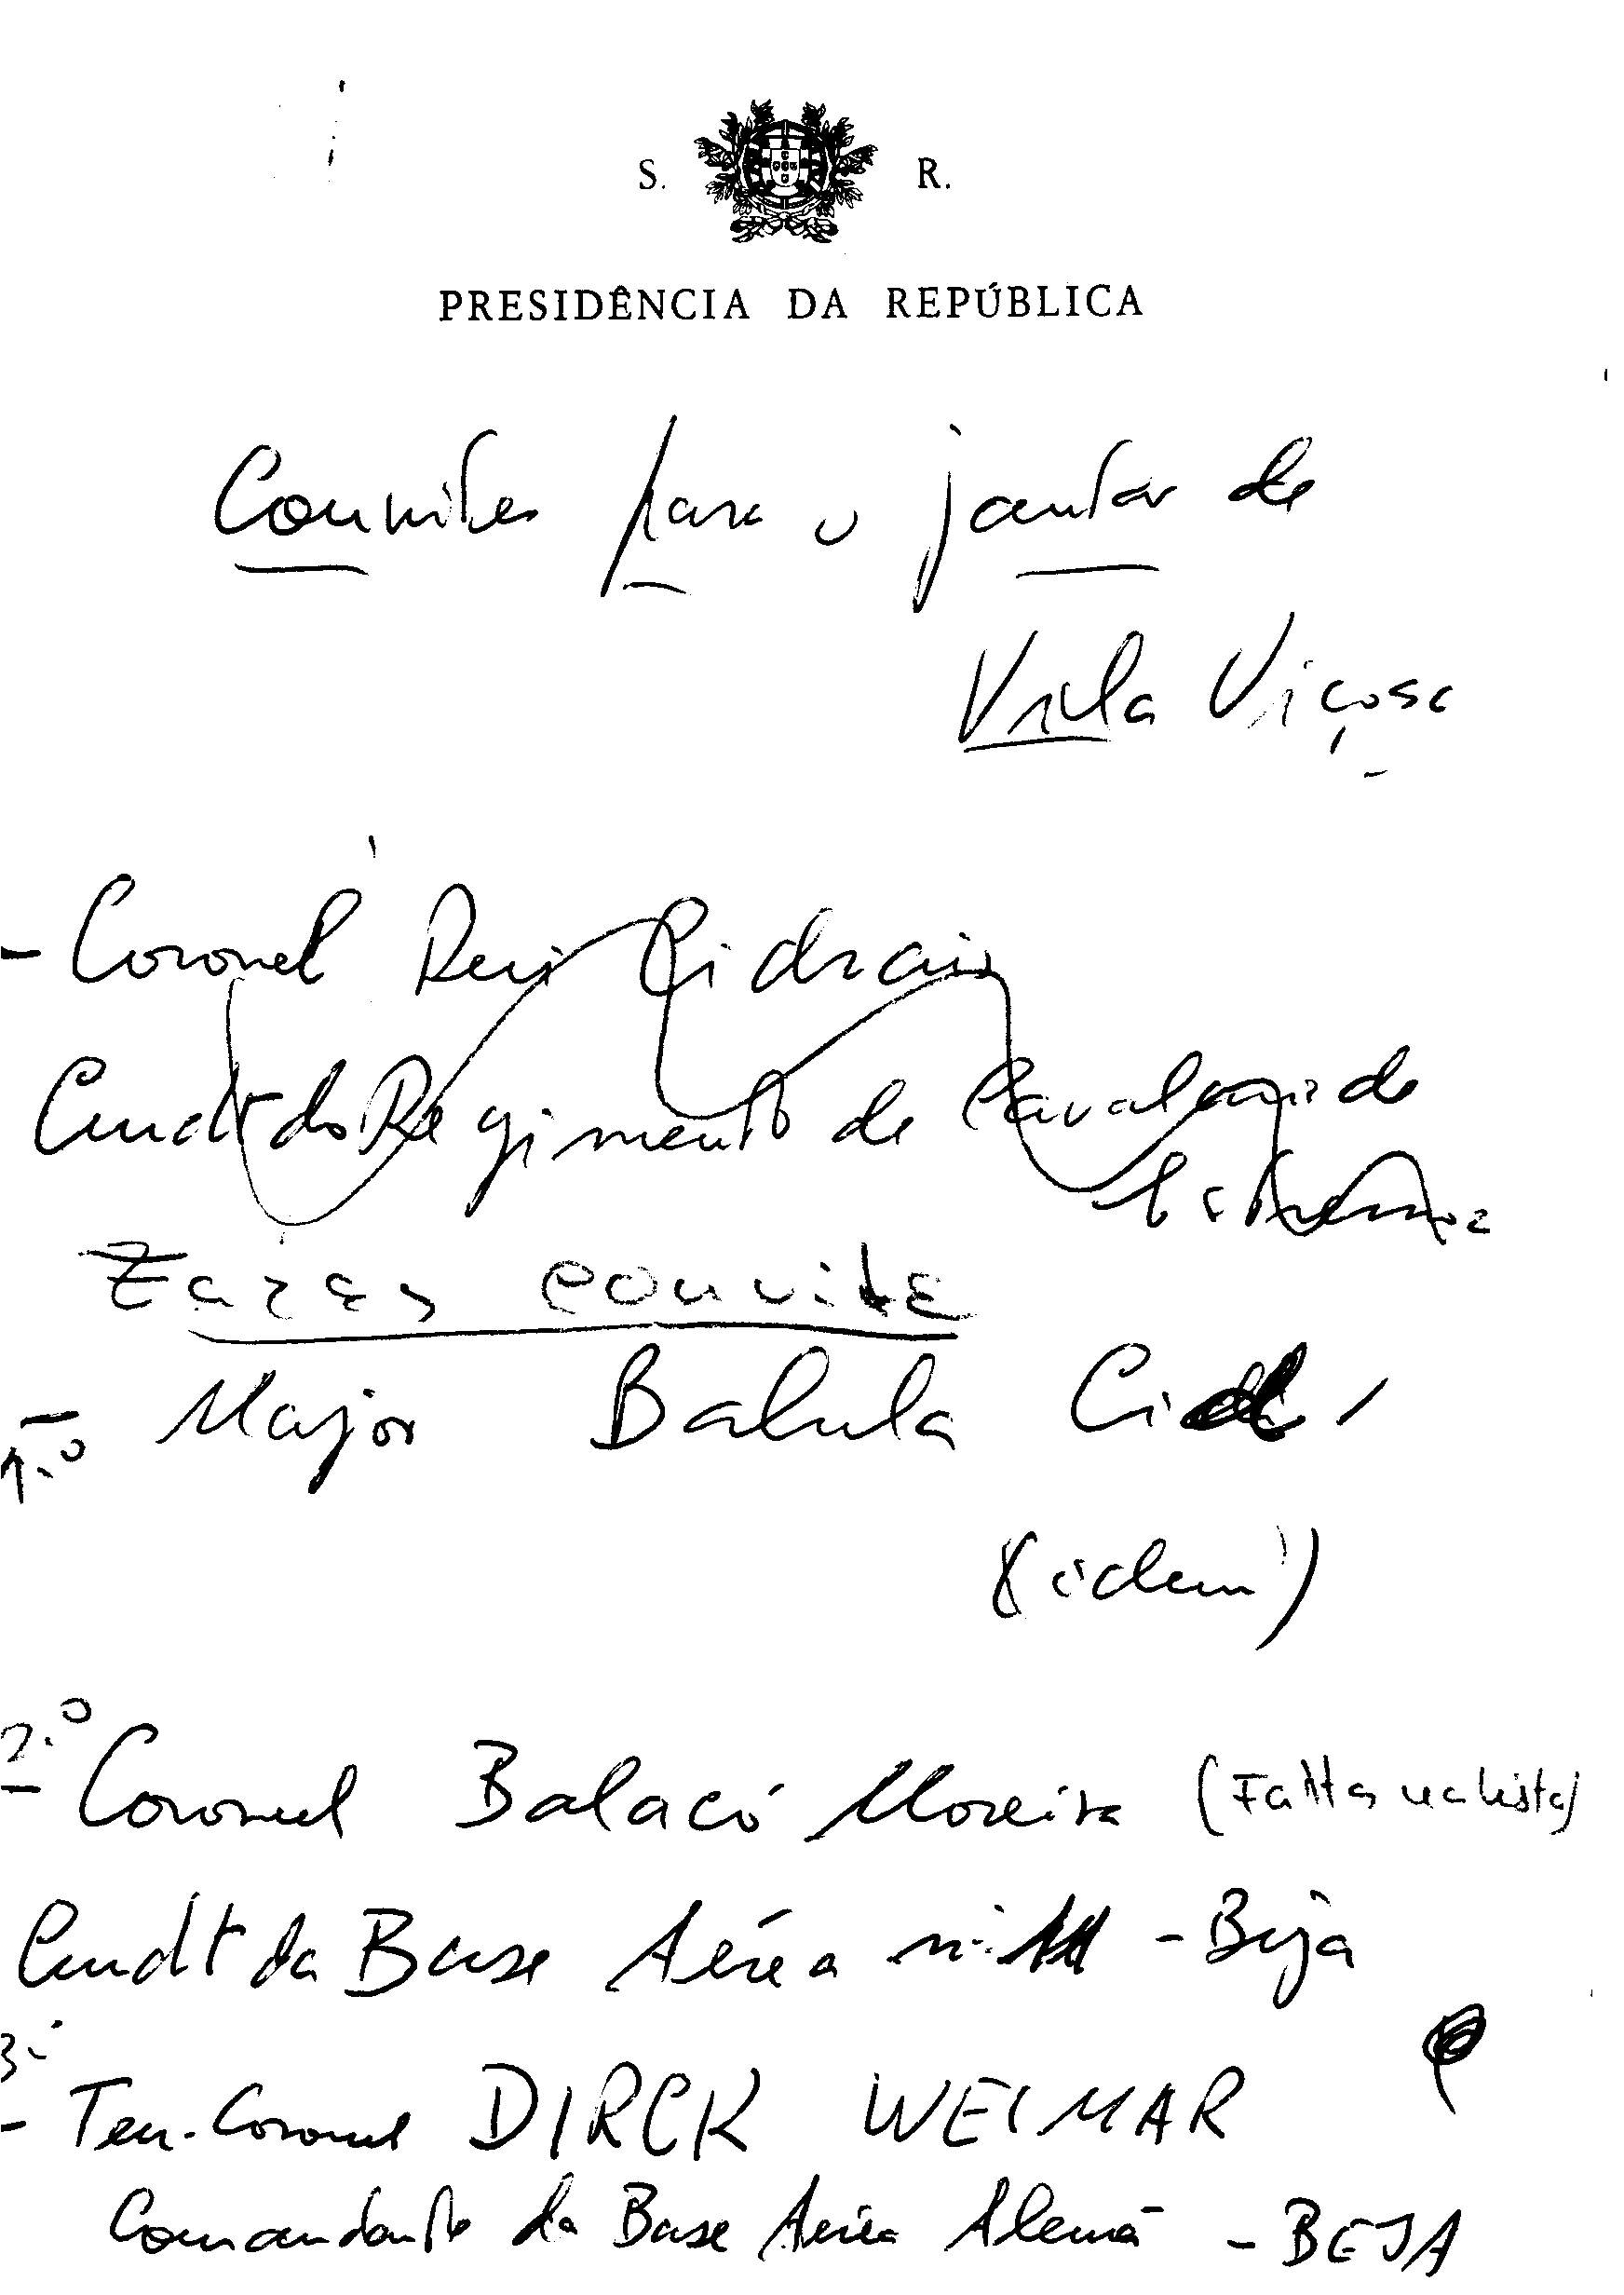 S. R.
PRESIDÊNCIA DA REPÚBLICA
Convites para o jantar de
Vila Viçosa
- Coronel Rui Cidrais
Cmdt do Regimento de Cavalaria de
Estremoz
convite
- Major Balula Cid
1.º
(idem)
2.º
- Coronel Balacó Moreira (Falta na lista)
Cmdt da Base Aérea n.º 11 - Beja
3.º
- Ten. Coronel DIRCK WEIMAR
Comandante da Base Aérea Alemã - BEJA